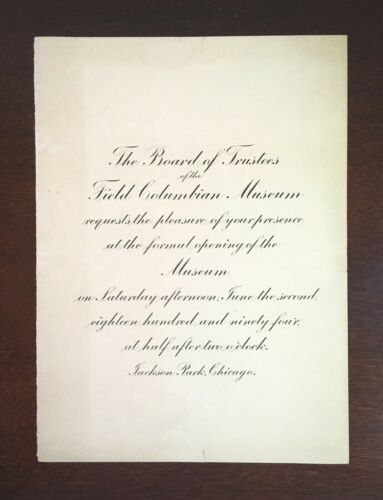 The Board of Trustees
of the
Field Columbian Museum
requests the pleasure of your presence
at the formal opening of the
Museum
on Saturday afternoon, June the second,
eighteen hundred and ninety four,
at half after two o'clock,
Jackson Park, Chicago.